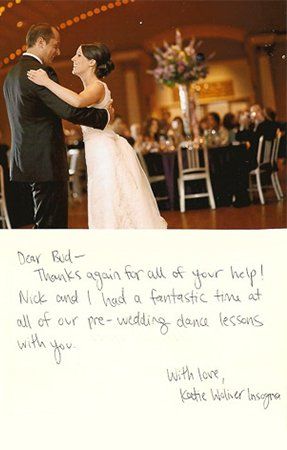 Dear Bud—
Thanks again for all of your help!
Nick and I had a fantastic time at
all of our pre-wedding dance lessons
with you.
With love,
Katie Woliver Insogna